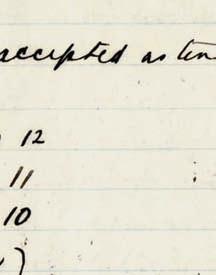 accepted as
12
11
10